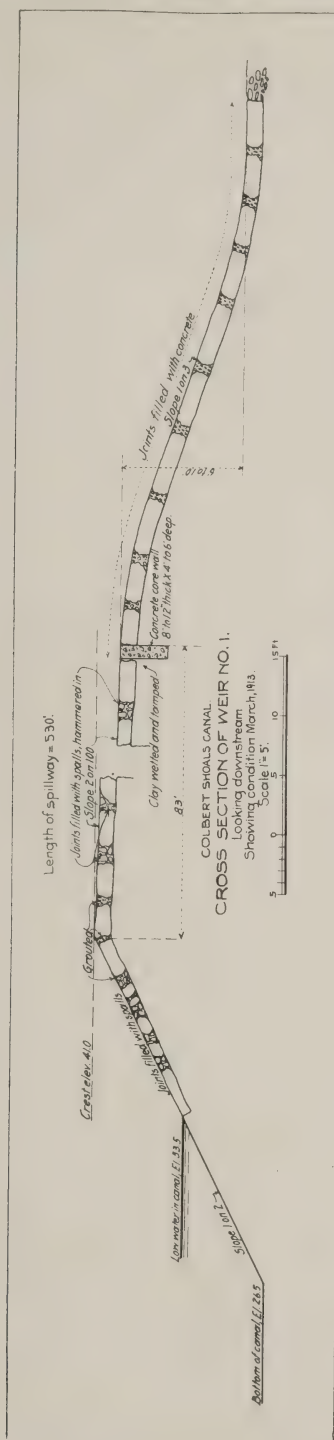 Length of spillway = 530'.
Crest elev. 41.0
Grouted
Joints filled with spalls, hammered in
Slope 2 on 100
Joints filled with spalls
Low water in canal, El. 33.5
Slope 1 on 2
Bottom of canal, El. 26.5
83'
Clay wetted and tamped
Concrete core wall
8" to 12" thick X 4' to 6' deep.
Joints filled with concrete
Slope 1 on 3
COLBERT SHOALS CANAL
CROSS SECTION OF WEIR NO. 1.
Looking downstream
Showing condition March, 1913.
Scale 1"= 5'.
5 0 5 10 15 Ft